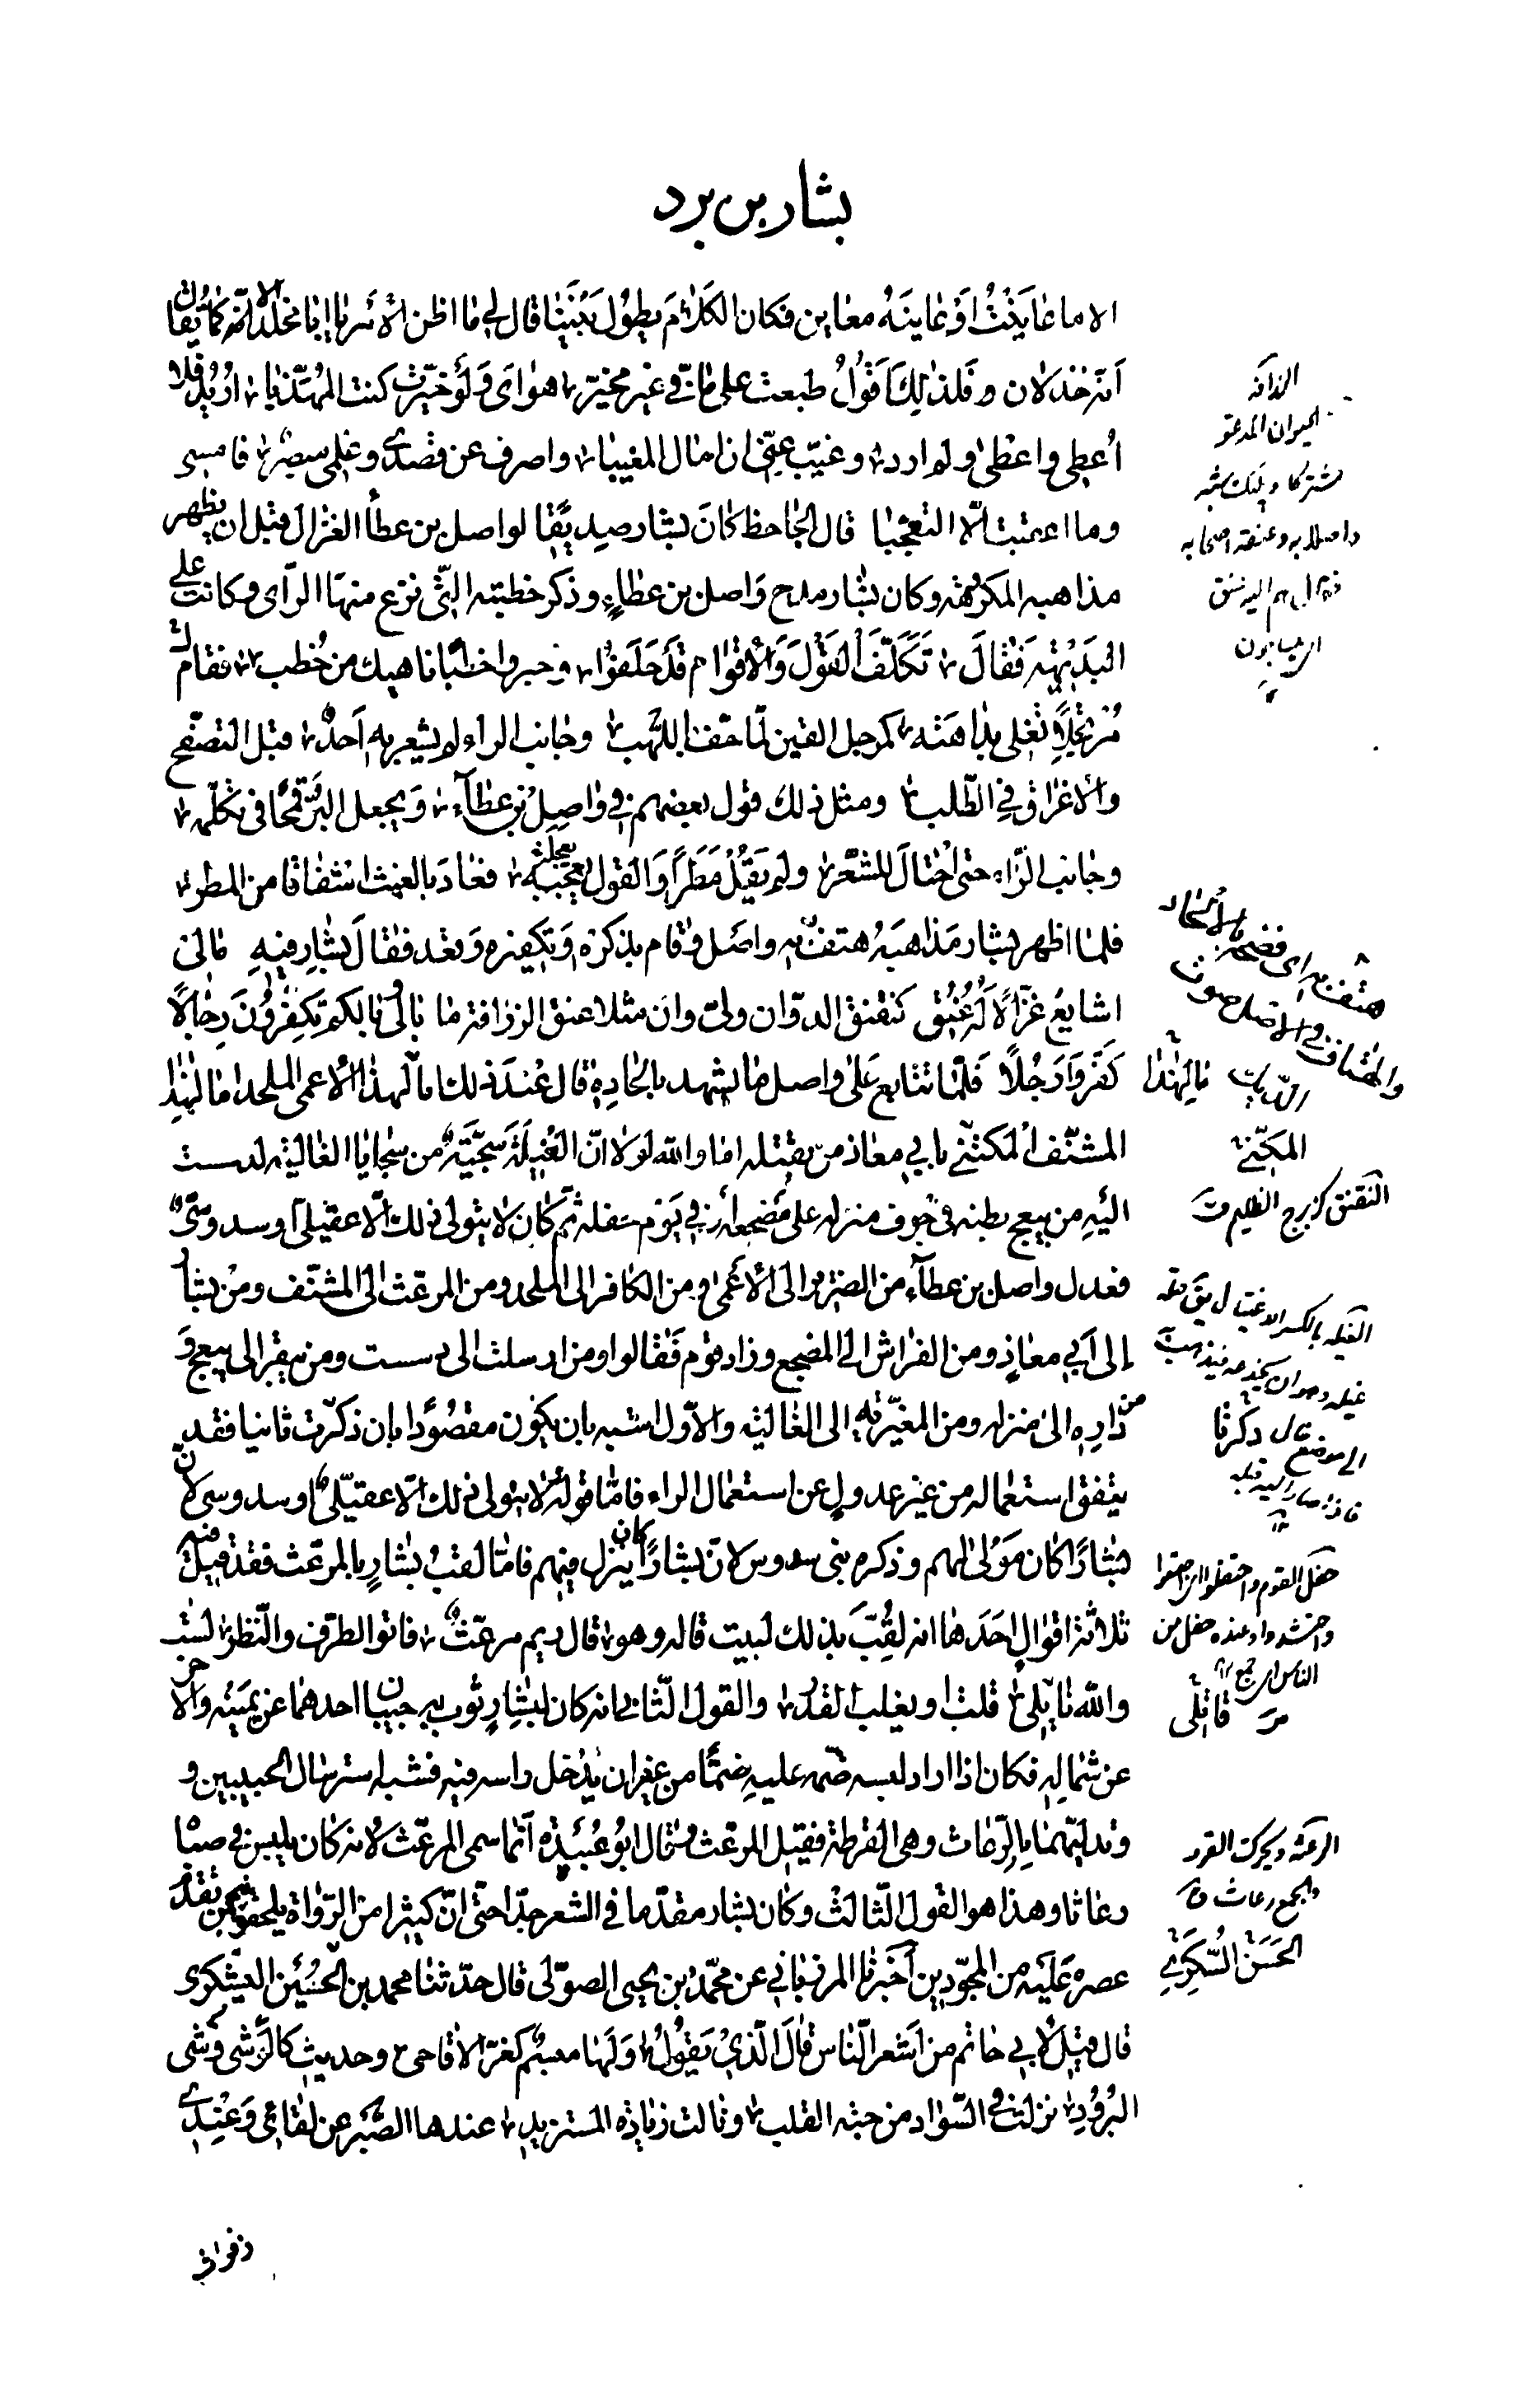 بشار بن برد
الا ما عاينته او عاينه معاين فكان الكلام يطول بيننا قال لي ما اظن الامر يا ابا مخلد الا كما يقال
انه خذلان ولذلك اقول طبعت على ما في غير مخير هواى ولو خيرت كنت المهذبا اريد فلا
اعطى واعطى ولم ارد وغيب عني ان انال المغيبا واصرف عن قصدى وعلمى مبصر فامسى
وما اعقبت الا التعجبا قال الجاحظ كان بشار صديقا لواصل بن عطاء الغزال قبل ان يظهر
مذاهبه المكروهة وكان بشار مدح واصل بن عطاء وذكر خطبته التي نزع منها الراى وكانت على
البديهة فقال تكلف القول والاقوام قد حفلوا وحبروا خطبا ناهيك من خطب فقام
مرتجلا تغلى بداهته كمرجل القين لما حف باللهب وجانب الراء لم يشعر به احد قبل التصفح
والاغراق في الطلب ومثل ذلك قول بعضهم في واصل بن عطاء ويجعل البر قمحا في تكلمه
وجانب الراء حتى احتال للشعر ولم يقل مطرا والقول يعجله فعاد بالغيث اشفاقا من المطر
فلما اظهر بشار مذاهبه هتف به واصل وقام بذكره وتكفيره وقعد فقال بشار فيه مالى
اشايع غزالا له عنق كنقنق الدو ان ولى وان مثلا عنق الزرافة ما بالى وبالكم تكفرون رجالا
كفروا رجلا فلما تتابع على واصل ما يشهد بالحاده قال عند ذلك ما لهذا الاعمى الملحد ما لهذا
المشنف المكتنى بابي معاذ من يقتله اما والله لولا ان الغيلة سجية من سجايا الغالية لدسست
اليه من يبعج بطنه في جوف منزله على مضجعه في يوم حفله ثم كان لا يتولى ذلك الا عقيلى او سدوسى
فعدل واصل بن عطاء من الضرير الى الاعمى ومن الكافر الى الملحد ومن المرعث الى المشنف ومن بشار
الى ابي معاذ ومن الفراش الى المضجع وزاد قوم فقالوا ومن ارسلت الى دسست ومن يبقر الى يبعج و
من داره الى منزله ومن المغيرية الى الغالية والاول اشبه بان يكون مقصودا بان ذكرت ثانيا فقد
يتفق استعماله من غير عدول عن استعمال الراء فاما قوله لا يتولى ذلك الا عقيلى او سدوسى لان
بشارا كان مولى لهم وذكر بنى سدوس لان بشارا كان ينزل فيهم فاما لقب بشار بالمرعث فقد قيل فيه
ثلاثة اقوال احدها انه لقب بذلك لبيت قاله وهو قال ريم مرعث فاتر الطرف والنظر لست
والله نايلى قلت او يغلب القدر والقول الثاني انه كان لبشار ثوب له جيبان احدهما عن يمينه والاخر
عن شماله فكان اذا اراد لبسه ضمه عليه ضما من غير ان يدخل راسه فيه فشبه استرسال الجيبين و
وتدليهما بالرعاث وهى القرطة فقيل المرعث وقال ابو عبيدة انما سمى المرعث لانه كان يلبس في صباه
رعاثا وهذا هو القول الثالث وكان بشار مقدما في الشعر جدا حتى ان كثيرا من الرواة يلحقونه بمن تقدم
عصره عليه من المجودين اخبرنا المرزباني عن محمد بن يحيى الصولى قال حدثنا محمد بن الحسين اليشكرى
قال قيل لابي حاتم من اشعر الناس قال الذى يقول ولها مبسم كغر الاقاحى وحديث كالوشى وشى
البرود نزلت في السواد من حبة القلب ونالت زيادة المستزيد عندها الصبر عن لقائى وعندى
زفرات
الزرافة
الحيوان المدعو
ما لهذا
المكنى
النقنق كزبرج الظليم
قال ذكرنا
حفل القوم واحتفلوا
واحتشدوا وعنده حفل من
الناس اى جمع
قاتلى
الرعثة ويحرك القرط
والجمع رعاث
الحسن السكرى